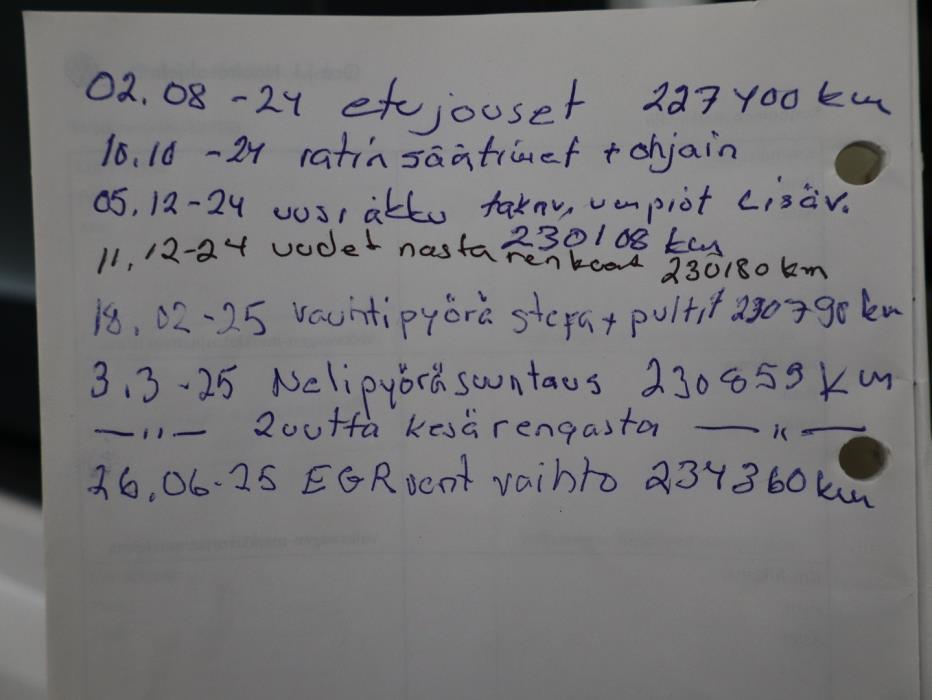 02.08-24 etujouset 227400 km
10.10-24 ratin säätimet + ohjain
05.12-24 uusi akku takav. umpiot Lisäv.
230108 km
11.12-24 uudet nastarenkaat 230180 km
18.02-25 vauhtipyörä + pultit 230790 km
3.3-25 Nelipyöräsuuntaus 230859 km
—„— 2uutta kesärengasta —„—
26.06-25 EGR vent vaihto 234360 km